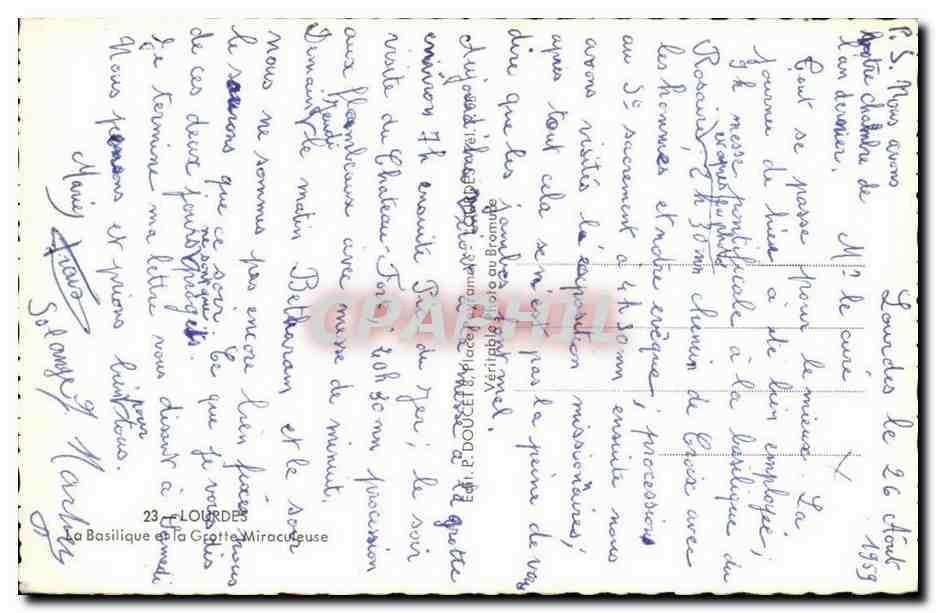 Lourdes le 26 Août 1959
Mr le curé
Tout se passe pour le mieux. La
journée de hier a été bien employée,
9h messe pontificale à la basilique du
Rosaire, 2h30mn chemin de Croix avec
les hommes et notre évêque, procession
au St sacrement à 4h30mn, ensuite nous
avons visités l'exposition missionnaires,
après tout cela se n'est pas la peine de vous
dire que les jambes font mal.
Aujourd'hui messe à la grotte
environ 7h ensuite Pic du Jer; le soir
visite du Chateau-Fort, 20h30mn procession
aux flambeaux avec messe de minuit.
Jeudi
Demain le matin Betharam et le soir
nous ne sommes pas encore bien fixés nous
le saurons que ce soir. Ce que je vous dis
ne sont que
de ces deux jours projets.
Je termine ma lettre vous disant à samedi
Nous pensons et prions bien pour tous.
P.S. Nous avons
notre chambre de
l'an dernier.
Solange
23 - LOURDES
La Basilique et la Grotte Miraculeuse
Edit. P. DOUCET 8, Place
Véritable Photo au Bromure
CPAPHIL